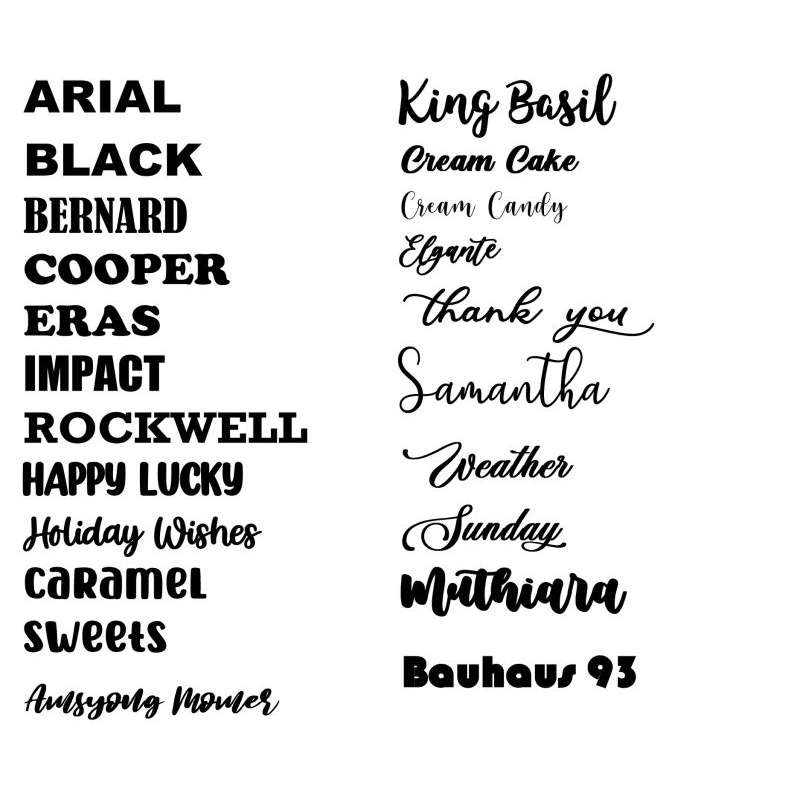 ARIAL
BLACK
BERNARD
COOPER
ERAS
IMPACT
ROCKWELL
HAPPY LUCKY
Holiday Wishes
CaRameL
sweets
Amsyong Momer
King Basil
Cream Cake
Cream Candy
Elgante
thank you
Samantha
Weather
Sunday
Muthiara
Bauhaus 93